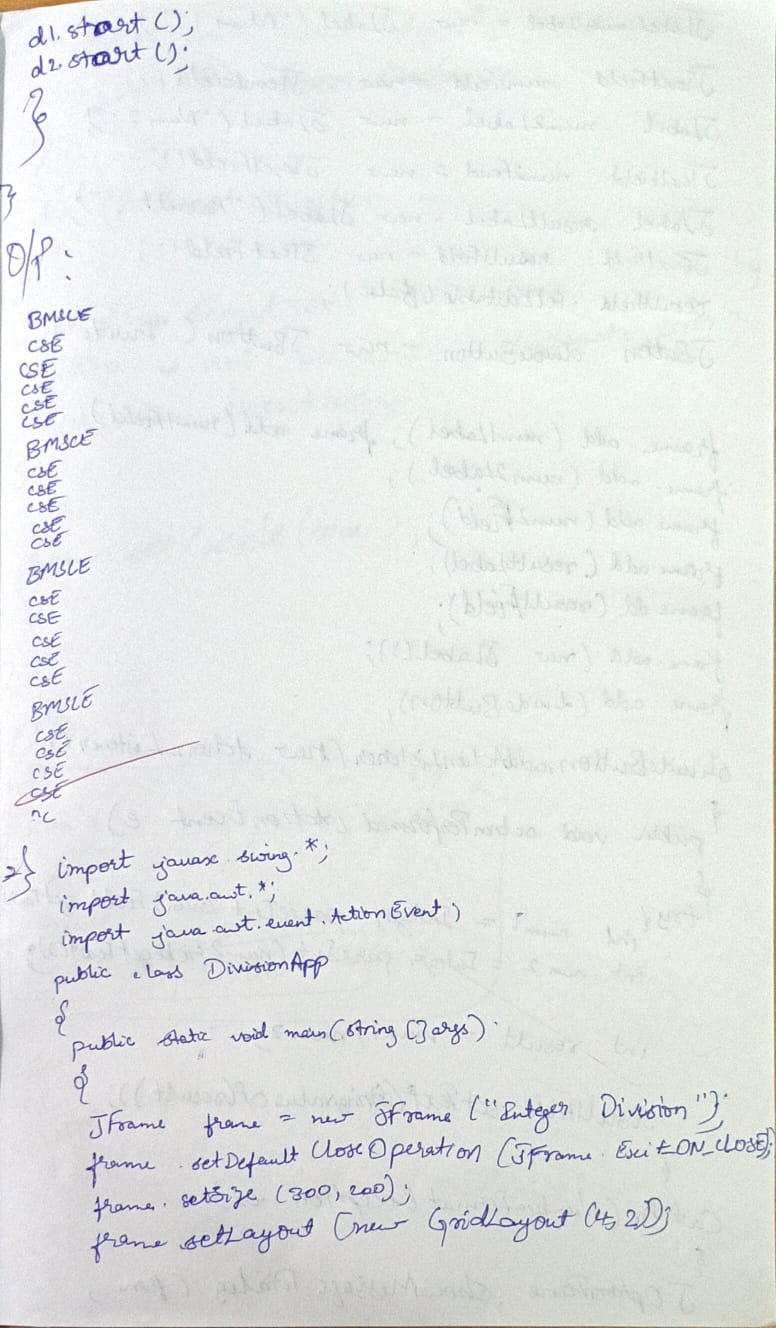 d1.start();
d2.start();
}
}
O/P:
BMSCE
CSE
CSE
CSE
CSE
CSE
BMSCE
CSE
CSE
CSE
CSE
CSE
BMSCE
CSE
CSE
CSE
CSE
CSE
BMSCE
CSE
CSE
CSE
CSE
^C
2} import javax.swing.*;
import java.awt.*;
import java.awt.event.ActionEvent)
public class DivisionApp
{
public static void main(String []args)
{
JFrame frame = new JFrame ("Integer Division");
frame.setDefault CloseOperation (JFrame.Exit_ON_CLOSE);
frame.setSize (300,200);
frame setLayout (new GridLayout (4,2));